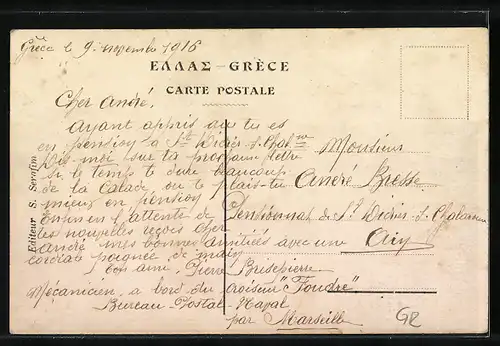 Grèce le 9 novembre 1916
ΕΛΛΑΣ – GRÈCE
CARTE POSTALE
Cher André,
Ayant appris que tu es
en pension à St Didier s. Chal.ne
Dis-moi sur ta prochaine lettre
si le temps te dure beaucoup
de la Calade, ou te plais-tu
mieux en pension
Enfin en l'attente de
tes nouvelles reçois cher
André mes bonnes amitiés avec une
cordiale poignée de main
ton ami, Pierre Brisepierre
Mécanicien, a bord du croiseur "Foudre"
Bureau Postal Naval
par Marseille
Monsieur
André Bresse
Pensionnat de St Didier s. Chalaronne
Ain
Editeur S. Serafim
GR